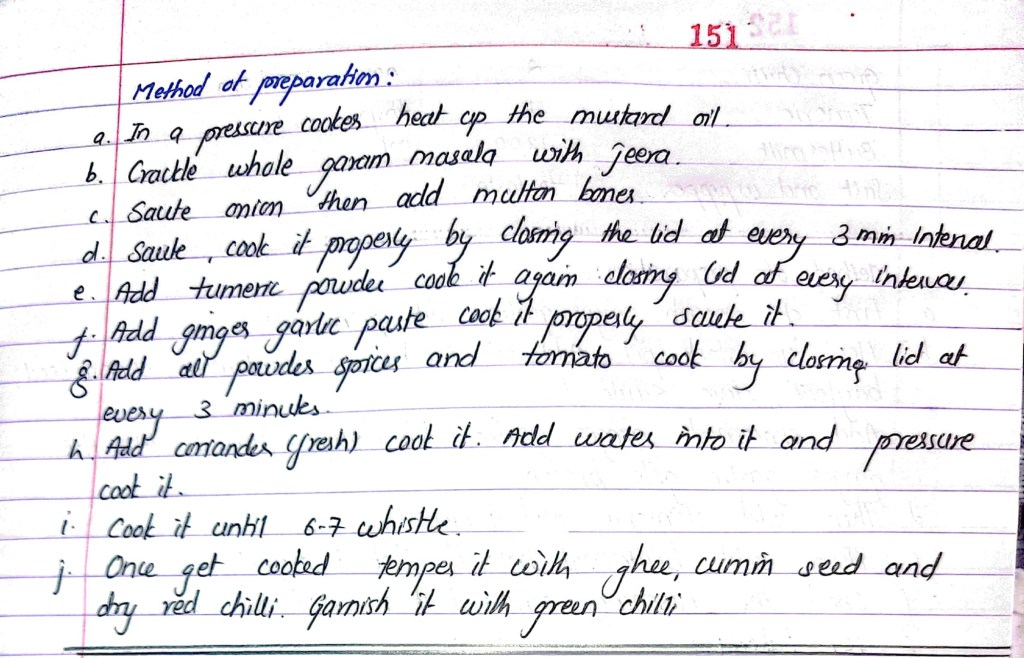 151
Method of preparation:
a. In a pressure cooker heat up the mustard oil.
b. Crackle whole garam masala with jeera.
c. Saute onion then add mutton bones.
d. Saute, cook it properly by closing the lid at every 3 min interval.
e. Add tumeric powder cook it again closing lid at every interval.
f. Add ginger garlic paste cook it properly saute it.
g. Add all powder spices and tomato cook by closing lid at
every 3 minutes.
h. Add corriander (fresh) cook it. Add water into it and pressure
cook it.
i. Cook it until 6-7 whistle.
j. Once get cooked temper it with ghee, cumin seed and
dry red chilli. Garnish it with green chilli